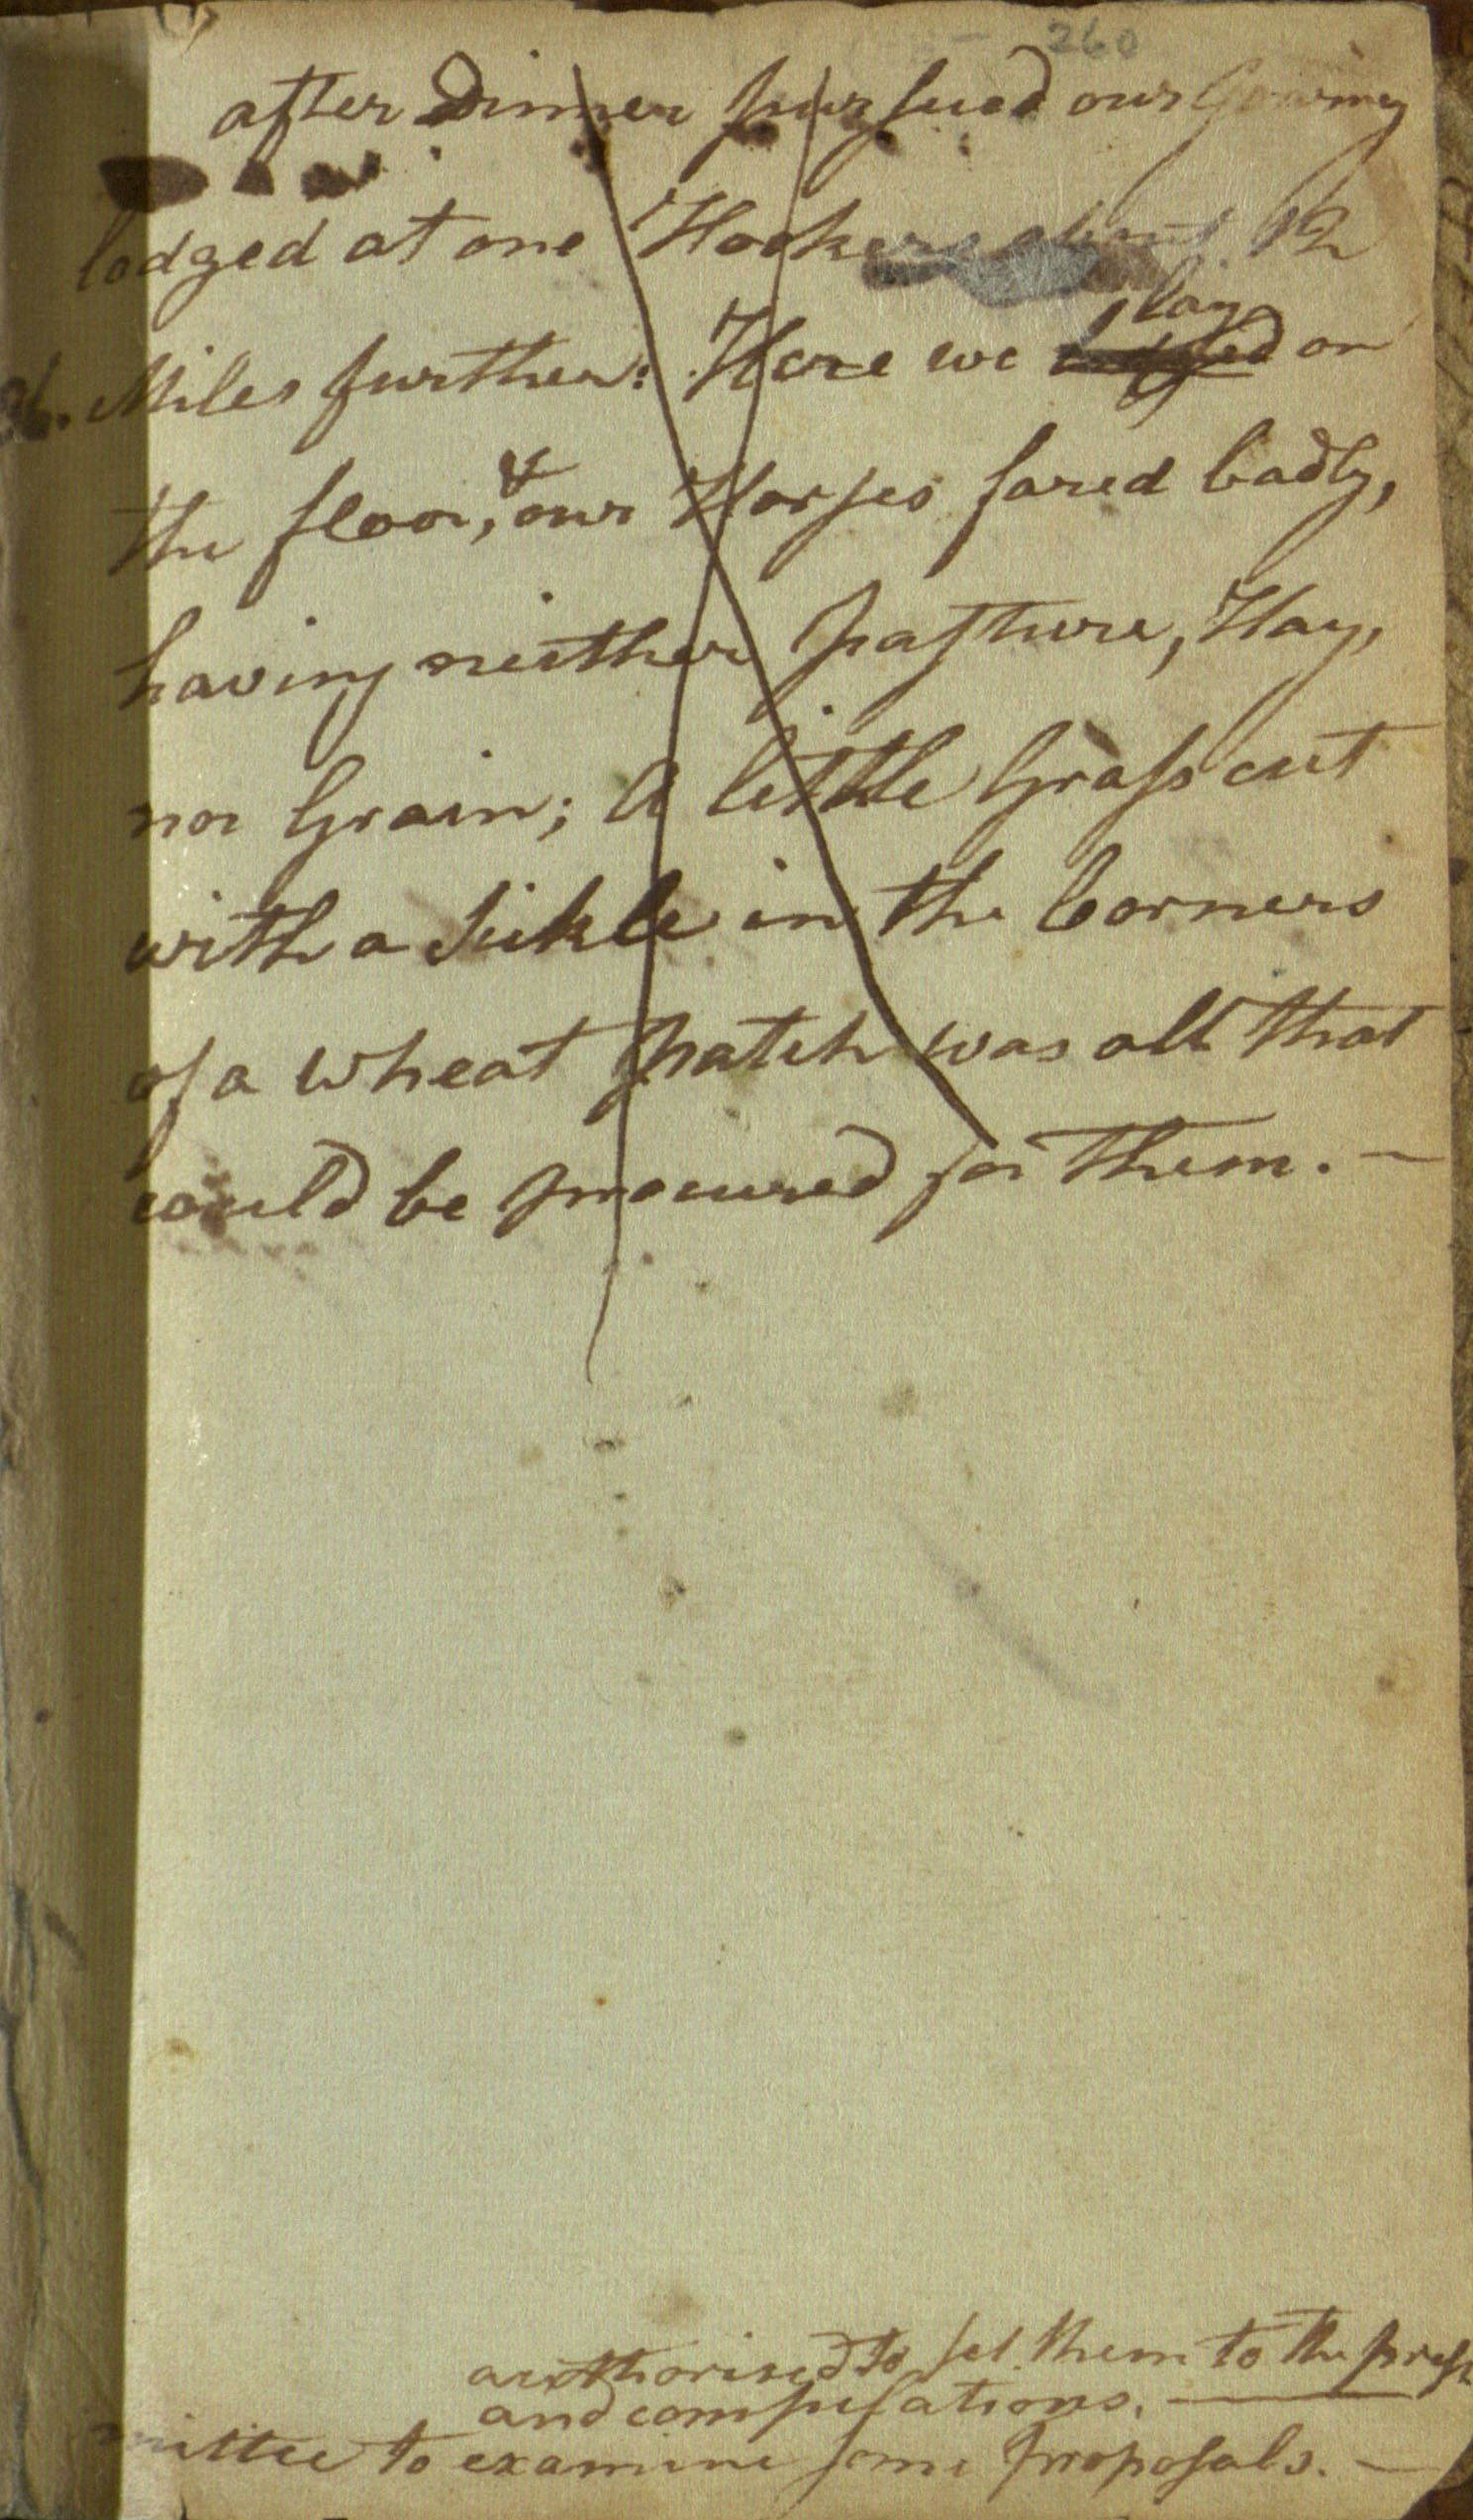 260
after Dinner pursued our Gourney
lodged at one Hookers about 12
Miles further: Here we lay on
the floor, & our Horses fared badly,
having neither pasture, Hay,
nor Grain; A little Grass cut
with a Sickle in the Corners
of a wheat patch was all that
could be procured for them. —
authorised to set them to the press
and compesations. —
mittee to examine some proposals. —